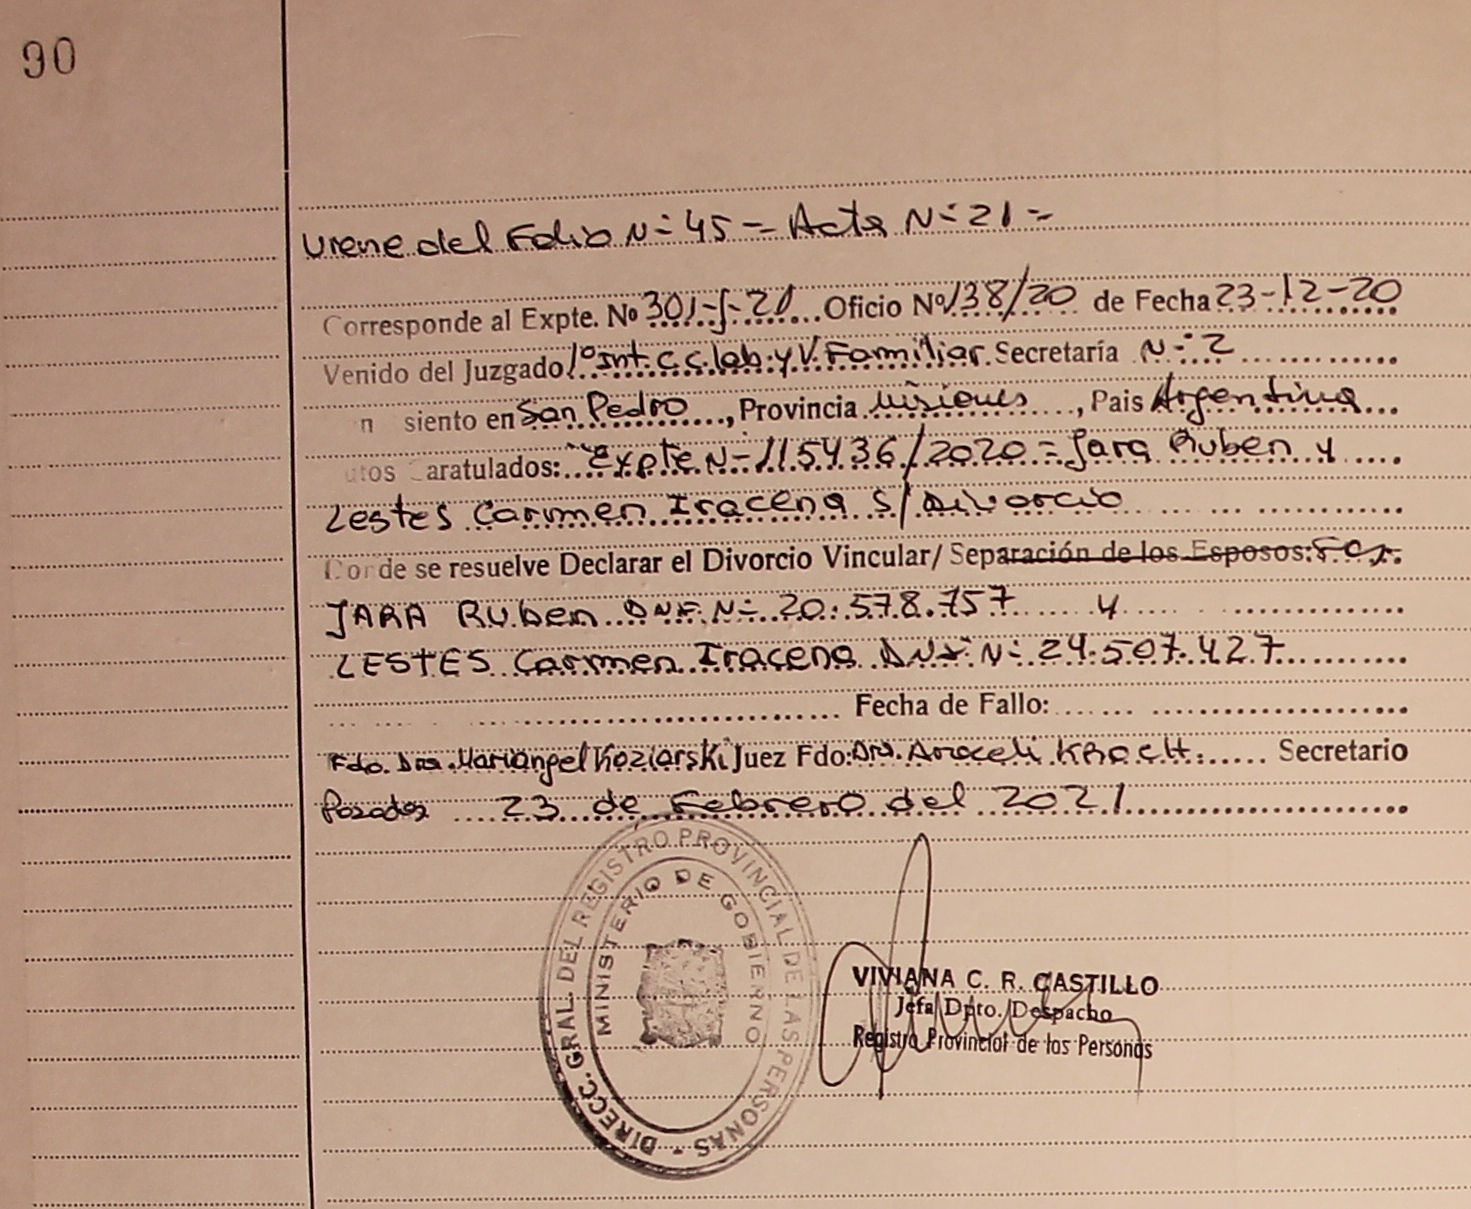 90
Viene del Folio N= 45 = Acta N= 21 =
Corresponde al Expte. Nº 301-J-21 Oficio Nº 138/20 de Fecha 23-12-20
Venido del Juzgado 1º Int. C.C. lab. y V. Familiar. Secretaría N= 2
n siento en San Pedro, Provincia Misiones, Pais Argentina
utos aratulados: Expte N= 115436/2020 = Jara Ruben y
Lestes Carmen Iracena S/ Divorcio
Cor de se resuelve Declarar el Divorcio Vincular/ Separación de los Esposos:
JARA Ruben DNI. N= 20.578.757 y
LESTES Carmen Iracena DNI N= 24.507.427
Fecha de Fallo:
Fdo. Dra. Mariangel Koziarski Juez Fdo: Dra. Araceli Secretario
Posadas 23 de Febrero del 2021
DIRECC. GRAL. DEL REGISTRO PROVINCIAL DE LAS PERSONAS -
MINISTERIO DE GOBIERNO
VIVIANA C. R. CASTILLO
Jefa Dpto. Despacho
Registro Provincial de las Personas